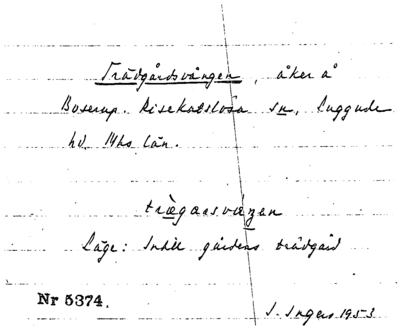 Trädgårdsvången, åker å
Boserup. Risekatslösa sn, Luggude
hd. Mhs län.
trægarsvæŋen
Läge: Intill gårdens trädgård
Nr 5374.
I. Ingers 1953